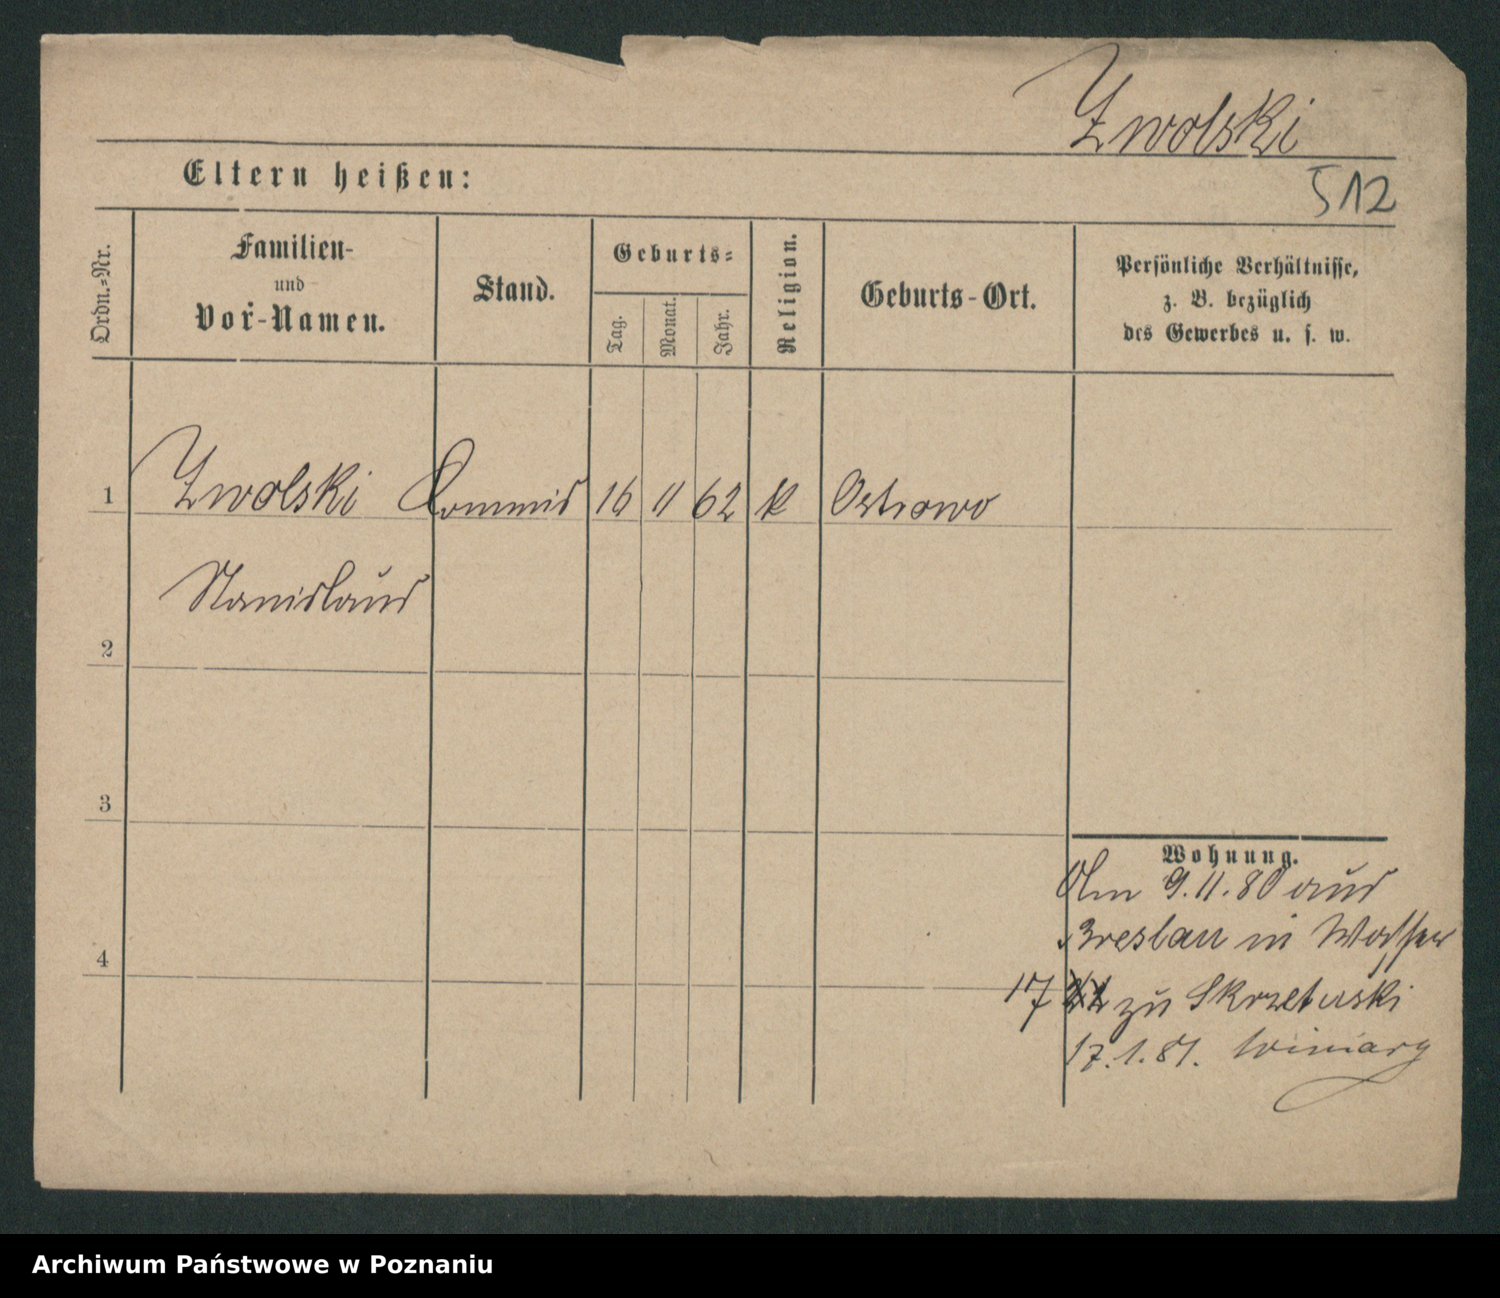 Zwolski
Eltern heißen:
512
Ordn.=Nr.
Familien-
und
Vor-Namen.
Stand.
Geburts=
Tag.
Monat.
Jahr.
Religion.
Geburts-Ort.
Persönliche Verhältnisse,
z. B. bezüglich
des Gewerbes u. s. w.
1 Zwolski Commis 16 11 62 k Ostrowo
Stanislaus
2
3
4
Wohnung.
Am 9.11.80 aus
Breslau in Wasser
17 zu Skrzetuski
17.1.81. Winiary
Archiwum Państwowe w Poznaniu